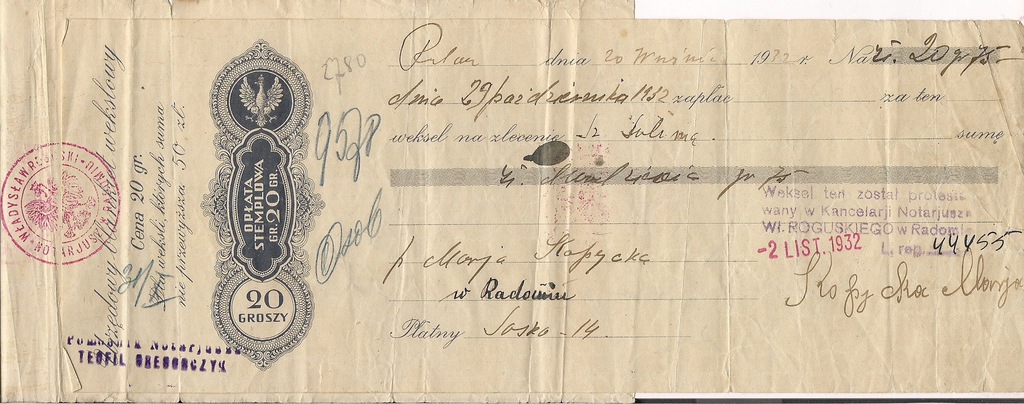 dnia 20 1932 r. Na zł. 20 gr 75
dnia 29 października 1932 zapłacę za ten
weksel na zlecenie sumę
zł. gr 75
Marja Kopycka
w Radomiu
Płatny 14
Kopycka Marja
Weksel ten został protesto
wany w Kancelarji Notarjusza
WŁ. ROGUSKIEGO w Radomiu
-2 LIST. 1932 L. rep. 44455
2780
9578
Osob
OPŁATA
STEMPLOWA
GR. 20 GR.
20
GROSZY
Urzędowy blankiet wekslowy
Cena 20 gr.
na weksle, których suma
nie przewyższa 50 zł.
31/
WŁADYSŁAW ROGUSKI NOTARJUSZ
Pomocnik Notarjusza
TEOFIL GREGORCZYK